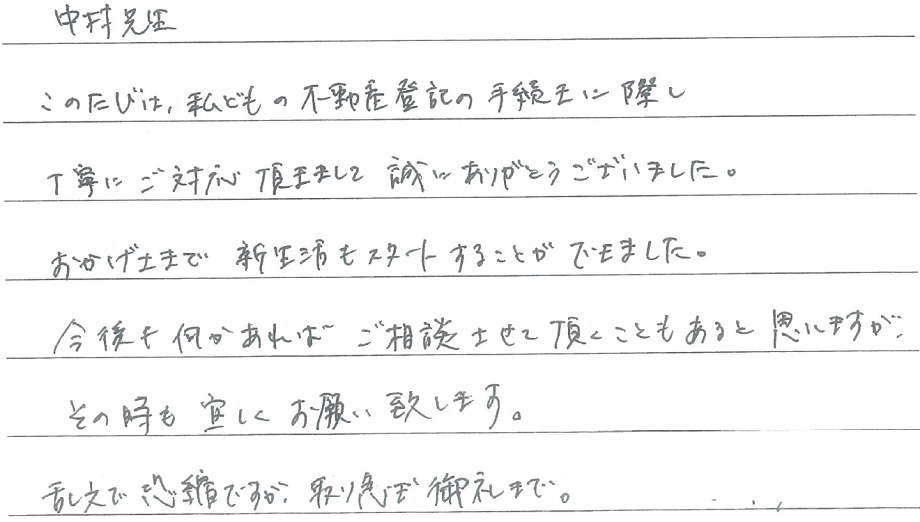 中村先生
このたびは、私どもの不動産登記の手続きに際し
丁寧にご対応頂きまして誠にありがとうございました。
おかげさまで新生活もスタートすることができました。
今後も何かあればご相談させて頂くこともあると思いますが、
その時も宜しくお願い致します。
乱文で恐縮ですが、取り急ぎ御礼まで。